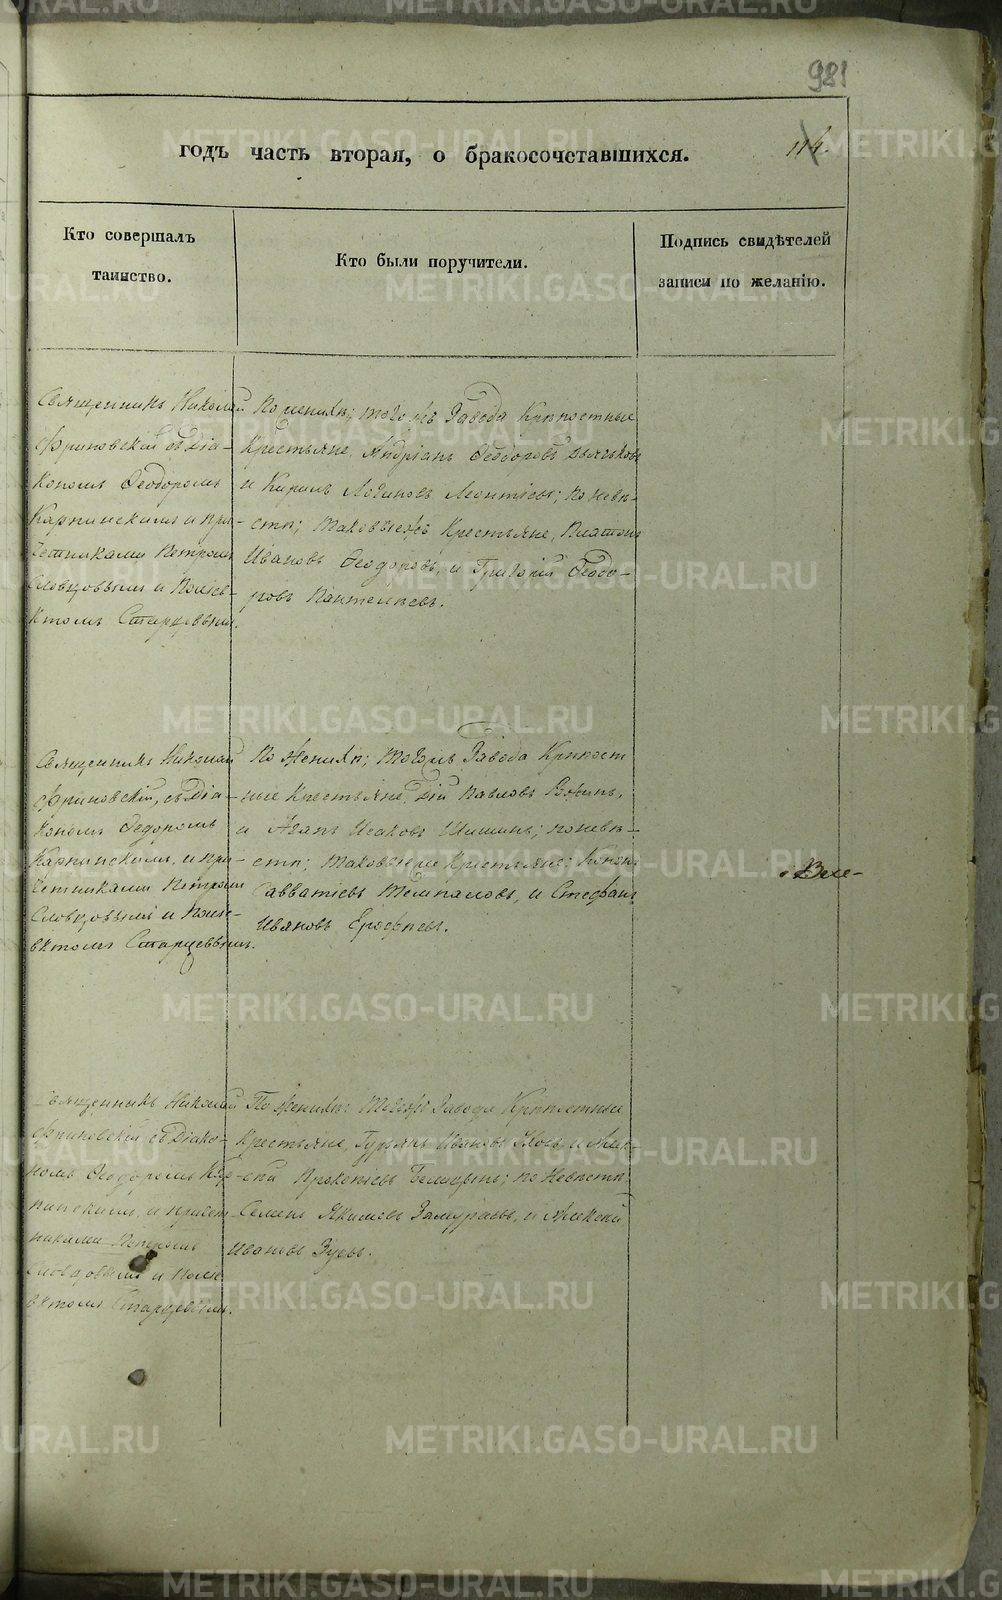 981
годъ часть вторая, о бракосочетавшихся.
114.
Кто совершалъ
таинство.
Кто были поручители.
Подпись свидѣтелей
записи по желанію.
Священникъ Николай
Фриновскій съ Діа-
кономъ Ѳеодоромъ
Карпинскимъ и при-
четниками Петромъ
Словцовымъ и Поліе-
ктомъ Старцевымъ.
По женихѣ; тогожъ Завода Крѣпостные
Крестьяне, Андріанъ Ѳеодоровъ
и Кирилъ Логиновъ Леонтьевъ; по невѣ-
стѣ; таковыежъ Крестьяне, Платонъ
Ивановъ Ѳеодоровъ, и Григорій Ѳеодо-
ровъ Пантелѣевъ.
Священникъ Николай
Фриновскій, съ Діа-
кономъ Ѳедоромъ
Карпинскимъ, и при-
четниками Петромъ
Словцовымъ и Поліе-
вктомъ Старцевымъ.
По женихѣ; тогожъ Завода Крѣпост
ные Крестьяне, Павловъ
и Агапъ Исаковъ Шишинъ; по невѣ-
стѣ; таковыеже Крестьяне;
Савватіевъ и Стефанъ
Ивановъ Ерофѣевъ.
Вѣн-
Священникъ Николай
Фриновскій съ Діако-
номъ Ѳеодоромъ Кар-
пинскимъ, и причет-
никами Петромъ
Словцовымъ и Поліе
вктомъ Старцевымъ.
По женихѣ: тогожъ Завода Крѣпостные
Крестьяне Гурьянъ Ивановъ и Алек-
сѣй Прокопьевъ по Невѣстѣ
Семенъ Якимовъ Замураевъ, и Алексѣй
Ивановъ Зуевъ.
METRIKI.GASO-URAL.RU